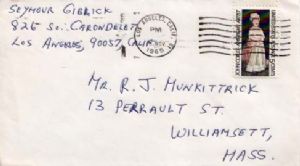 SEYMOUR GIBRICK
825 So. CARONDELET
LOS ANGELES, 90057 CALIF.
LOS ANGELES, CALIF.
PM
NOV
1965
MR. R. J. MUNKITTRICK
13 PERRAULT ST.
WILLIAMSETT,
MASS.